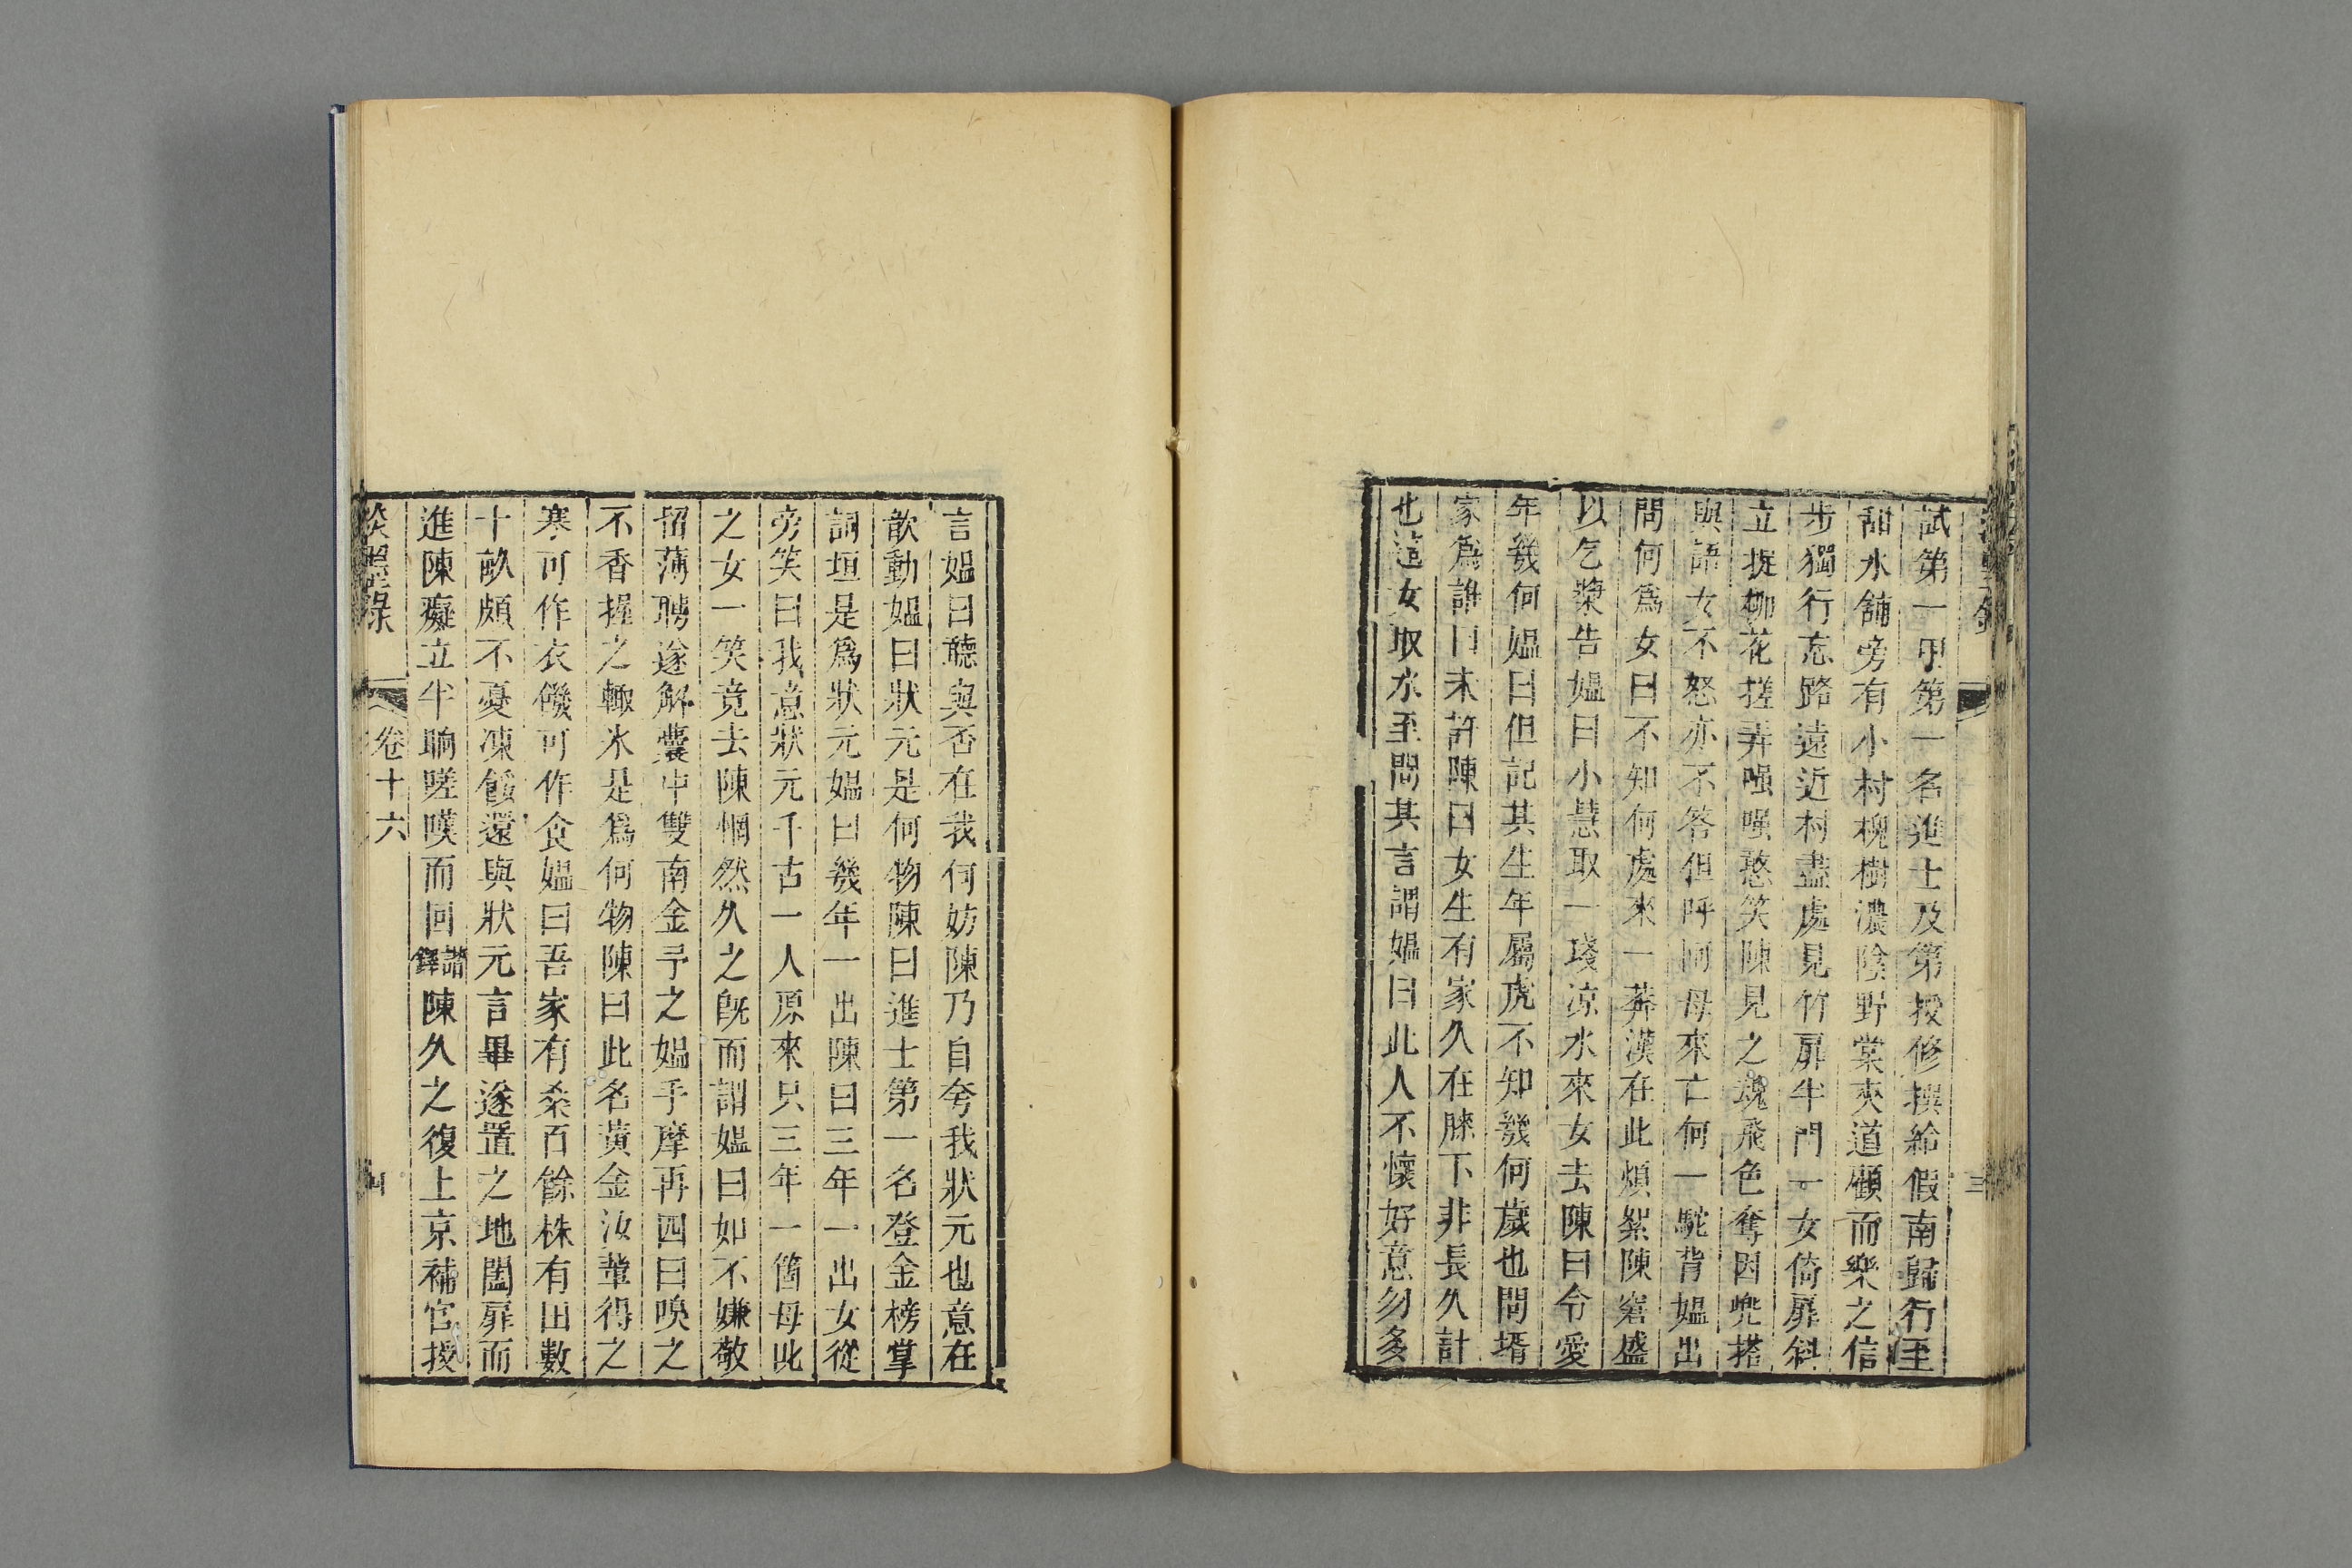 三
試第一甲第一名進士及第授修撰給假南歸行至
甜水舖旁有小村槐樹濃陰野棠夾道顧而樂之信
步獨行忘路遠近村盡處見竹扉半門一女倚扉斜
立捉柳花搓弄嘎嘎憨笑陳見之魂飛色奪因兜搭
與語女不怒亦不答但呼阿母來亡何一駝背媼出
問何爲女曰不知何處來一莽漢在此煩絮陳窘盛
以乞漿告媼曰小慧取一琖涼水來女去陳曰令愛
年幾何媼曰但記其生年屬虎不知幾何歲也問壻
家爲誰曰未許陳曰女生有家久在膝下非長久計
也這女取水至問其言謂媼曰此人不懷好意勿多
言媼曰聽與否在我何妨陳乃自夸我狀元也意在
歆動媼曰狀元是何物陳曰進士第一名登金榜掌
詞垣是爲狀元媼曰幾年一出陳曰三年一出女從
旁笑曰我意狀元千古一人原來只三年一箇母叱
之女一笑竟去陳惘然久之旣而謂媼曰如不嫌敬
留薄聘遂解囊中雙南金予之媼手摩再四曰嗅之
不香握之輒氷是爲何物陳曰此名黃金汝輩得之
寒可作衣饑可作食媼曰吾家有桑百餘株有田數
十畝頗不憂凍餒還與狀元言畢遂置之地闔扉而
進陳癡立半晌嗟嘆而回諧鐸陳久之復上京補官授
卷十六